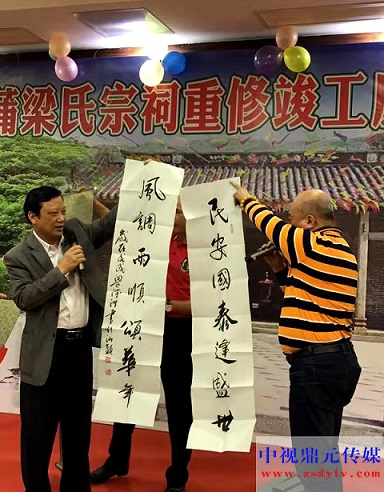 蒲梁氏宗祠重修竣工
民安國泰逢盛世
風調雨順頌華年
中视鼎元传媒
www.zsdytv.com